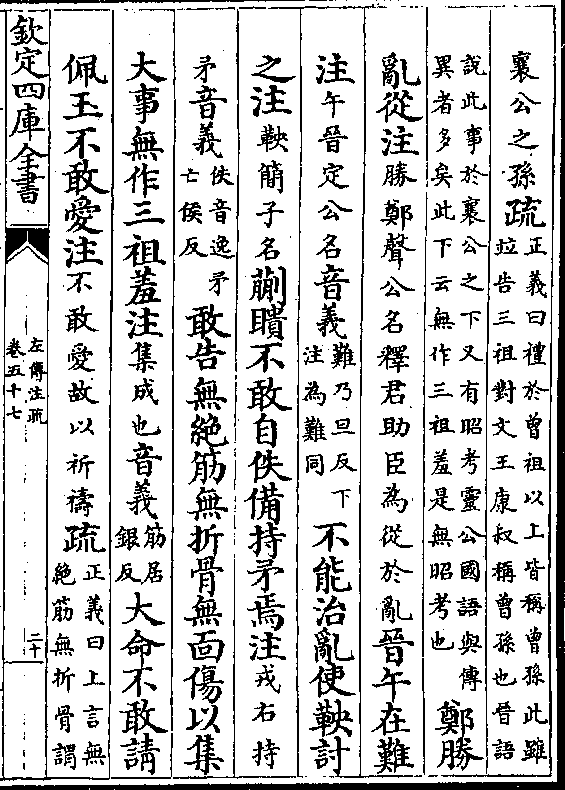 襄公之孫疏正義曰禮於曾祖以上皆稱曾孫此雖
竝告三祖對文王康叔稱曾孫也晉語
說此事於襄公之下又有昭考靈公國語與傳
異者多矣此下云無作三祖羞是無昭考也鄭勝
亂從注勝鄭聲公名釋君助臣為從於亂晉午在難
注午晉定公名音義難乃旦反下
注為難同不能治亂使鞅討
之注鞅簡子名蒯聵不敢自佚備持矛焉注戎右持
矛音義佚音逸矛
亡侯反敢告無絕筋無折骨無面傷以集
大事無作三祖羞注集成也音義筋居
銀反大命不敢請
佩玉不敢愛注不敢愛故以祈禱疏正義曰上言無
絶筋無折骨謂
欽定四庫全書
左傳注疏
卷五十七
二十